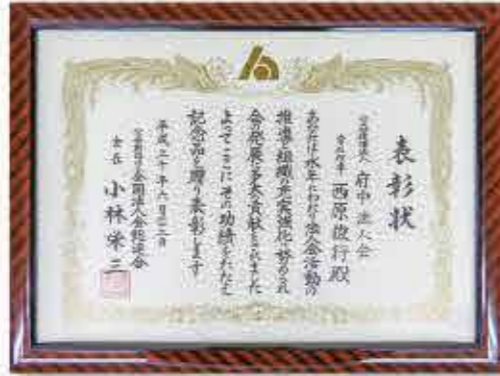 表彰状
公益社団法人 府中法人会
西原俊行殿
あなたは永年にわたり法人会活動の
推進と組織の充実強化に努められ
会の発展に多大な貢献をされました
よってここにその功績をたたえ
記念品を贈り表彰します
平成三十年六月二十二日
公益財団法人全国法人会総連合
会長 小林栄三